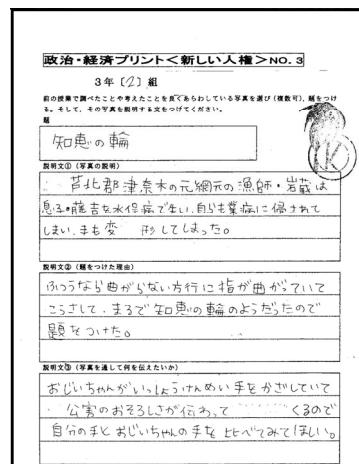 政治・経済プリント<新しい人権>NO.3
3年〔2〕組
前の授業で調べたことや考えたことを良くあらわしている写真を選び(複数可)、題をつけ
る。そして、その写真を説明する文をつけてください。
題
知恵の輪
説明文①(写真の説明)
芦北郡津奈木の元網元の漁師・岩蔵は
息子・藤吉を水俣病で失い、自らも業病に侵されて
しまい、手も変 形してしまった。
説明文②(題をつけた理由)
ふつうなら曲がらない方行に指が曲がっていて
こうさして、まるで知恵の輪のようだったので
題をつけた。
説明文③(写真を通して何を伝えたいか)
おじいちゃんがいっしょうけんめい手をかざしていて
公害のおそろしさが伝わって くるので
自分の手とおじいちゃんの手を比べてみてほしい。